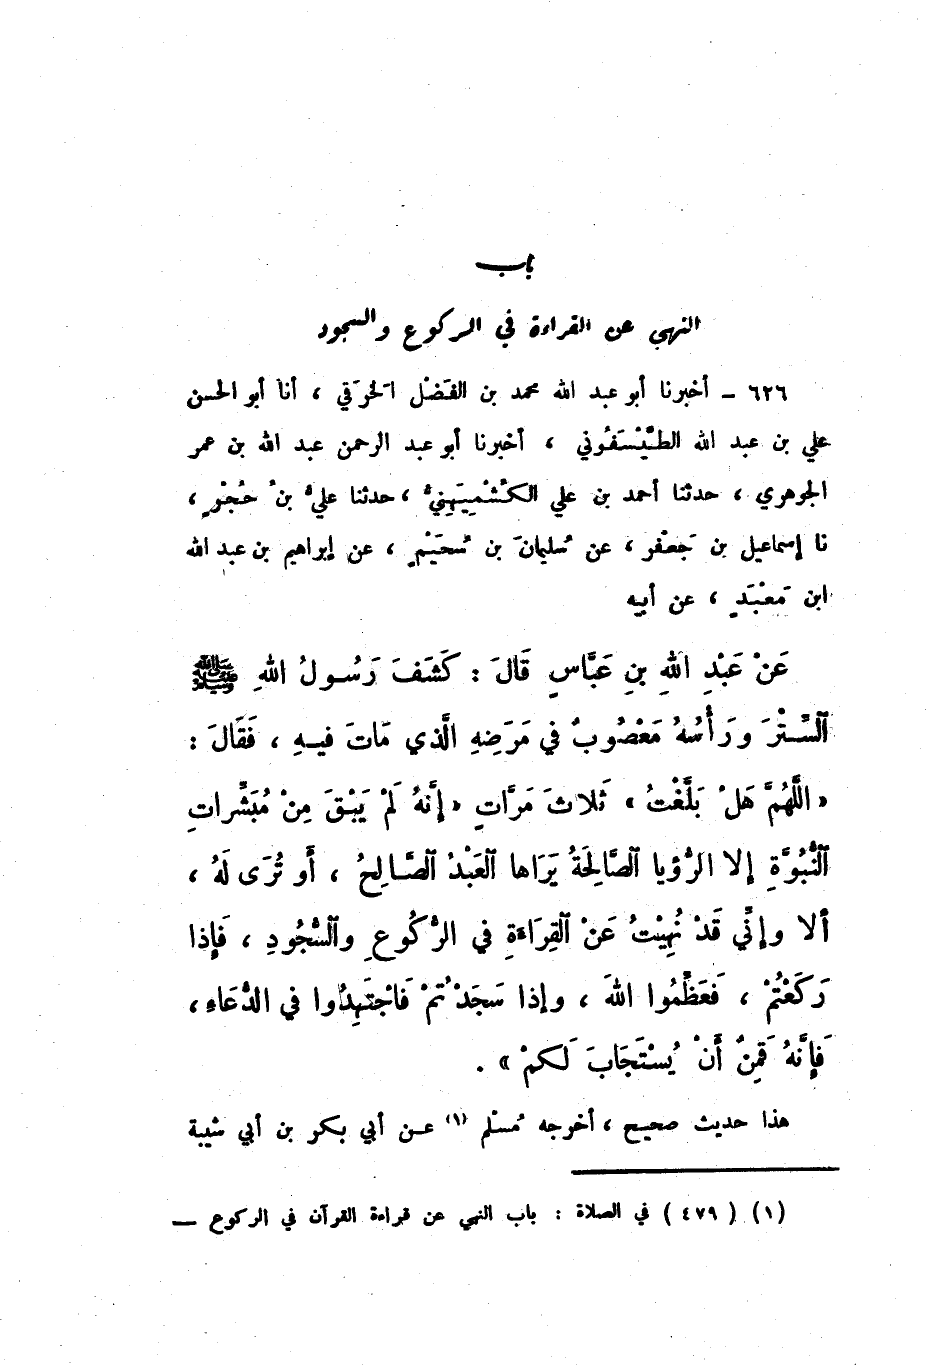 باب
النهي عن القراءة في الركوع والسجود
٦٢٦ – أخبرنا أبو عبد الله محمد بن الفَضْل الخَرَقي ، أنا أبو الحسن
علي بن عبد الله الطَّيْسَفُوني ، أخبرنا أبو عبد الرحمن عبد الله بن عمر
الجوهري ، حدثنا أحمد بن علي الكُشْمِيهَنِيُّ ، حدثنا عليُّ بنُ حُجْرٍ ،
نا إسماعيل بن جَعْفر ، عن سُليمانَ بن سُحَيْمٍ ، عن إبراهيم بن عبد الله
ابن مَعْبَدٍ ، عن أبيه
عَنْ عَبْدِ اللهِ بنِ عَبَّاسٍ قَالَ : كَشَفَ رَسُولُ اللهِ ﷺ
السِّتْرَ ورَأْسُهُ مَعْصُوبٌ في مَرَضِهِ الَّذي مَاتَ فيهِ ، فَقَالَ :
« اللَّهُمَّ هَلْ بَلَّغْتُ » ثَلاثَ مَرَّاتٍ « إنَّهُ لَمْ يَبْقَ مِنْ مُبَشِّراتِ
النُّبُوَّةِ إلا الرُّؤيا الصَّالِحَةُ يَرَاها العَبْدُ الصَّالِحُ ، أَو تُرَى لَهُ ،
ألا وإنِّي قَدْ نُهِيْتُ عَنْ القِرَاءَةِ في الرُّكُوعِ والسُّجُودِ ، فَإذا
رَكَعْتُمْ ، فَعَظِّمُوا اللهَ ، وإذا سَجَدْتُمْ فَاجْتَهِدُوا في الدُّعَاءِ ،
فَإنَّهُ قَمِنٌ أَنْ يُسْتَجَابَ لَكمْ » .
هذا حديث صحيح ، أخرجه مُسْلم (١) عن أبي بكر بن أبي شيبة
(١) (٤٧٩) في الصلاة : باب النهي عن قراءة القرآن في الركوع –